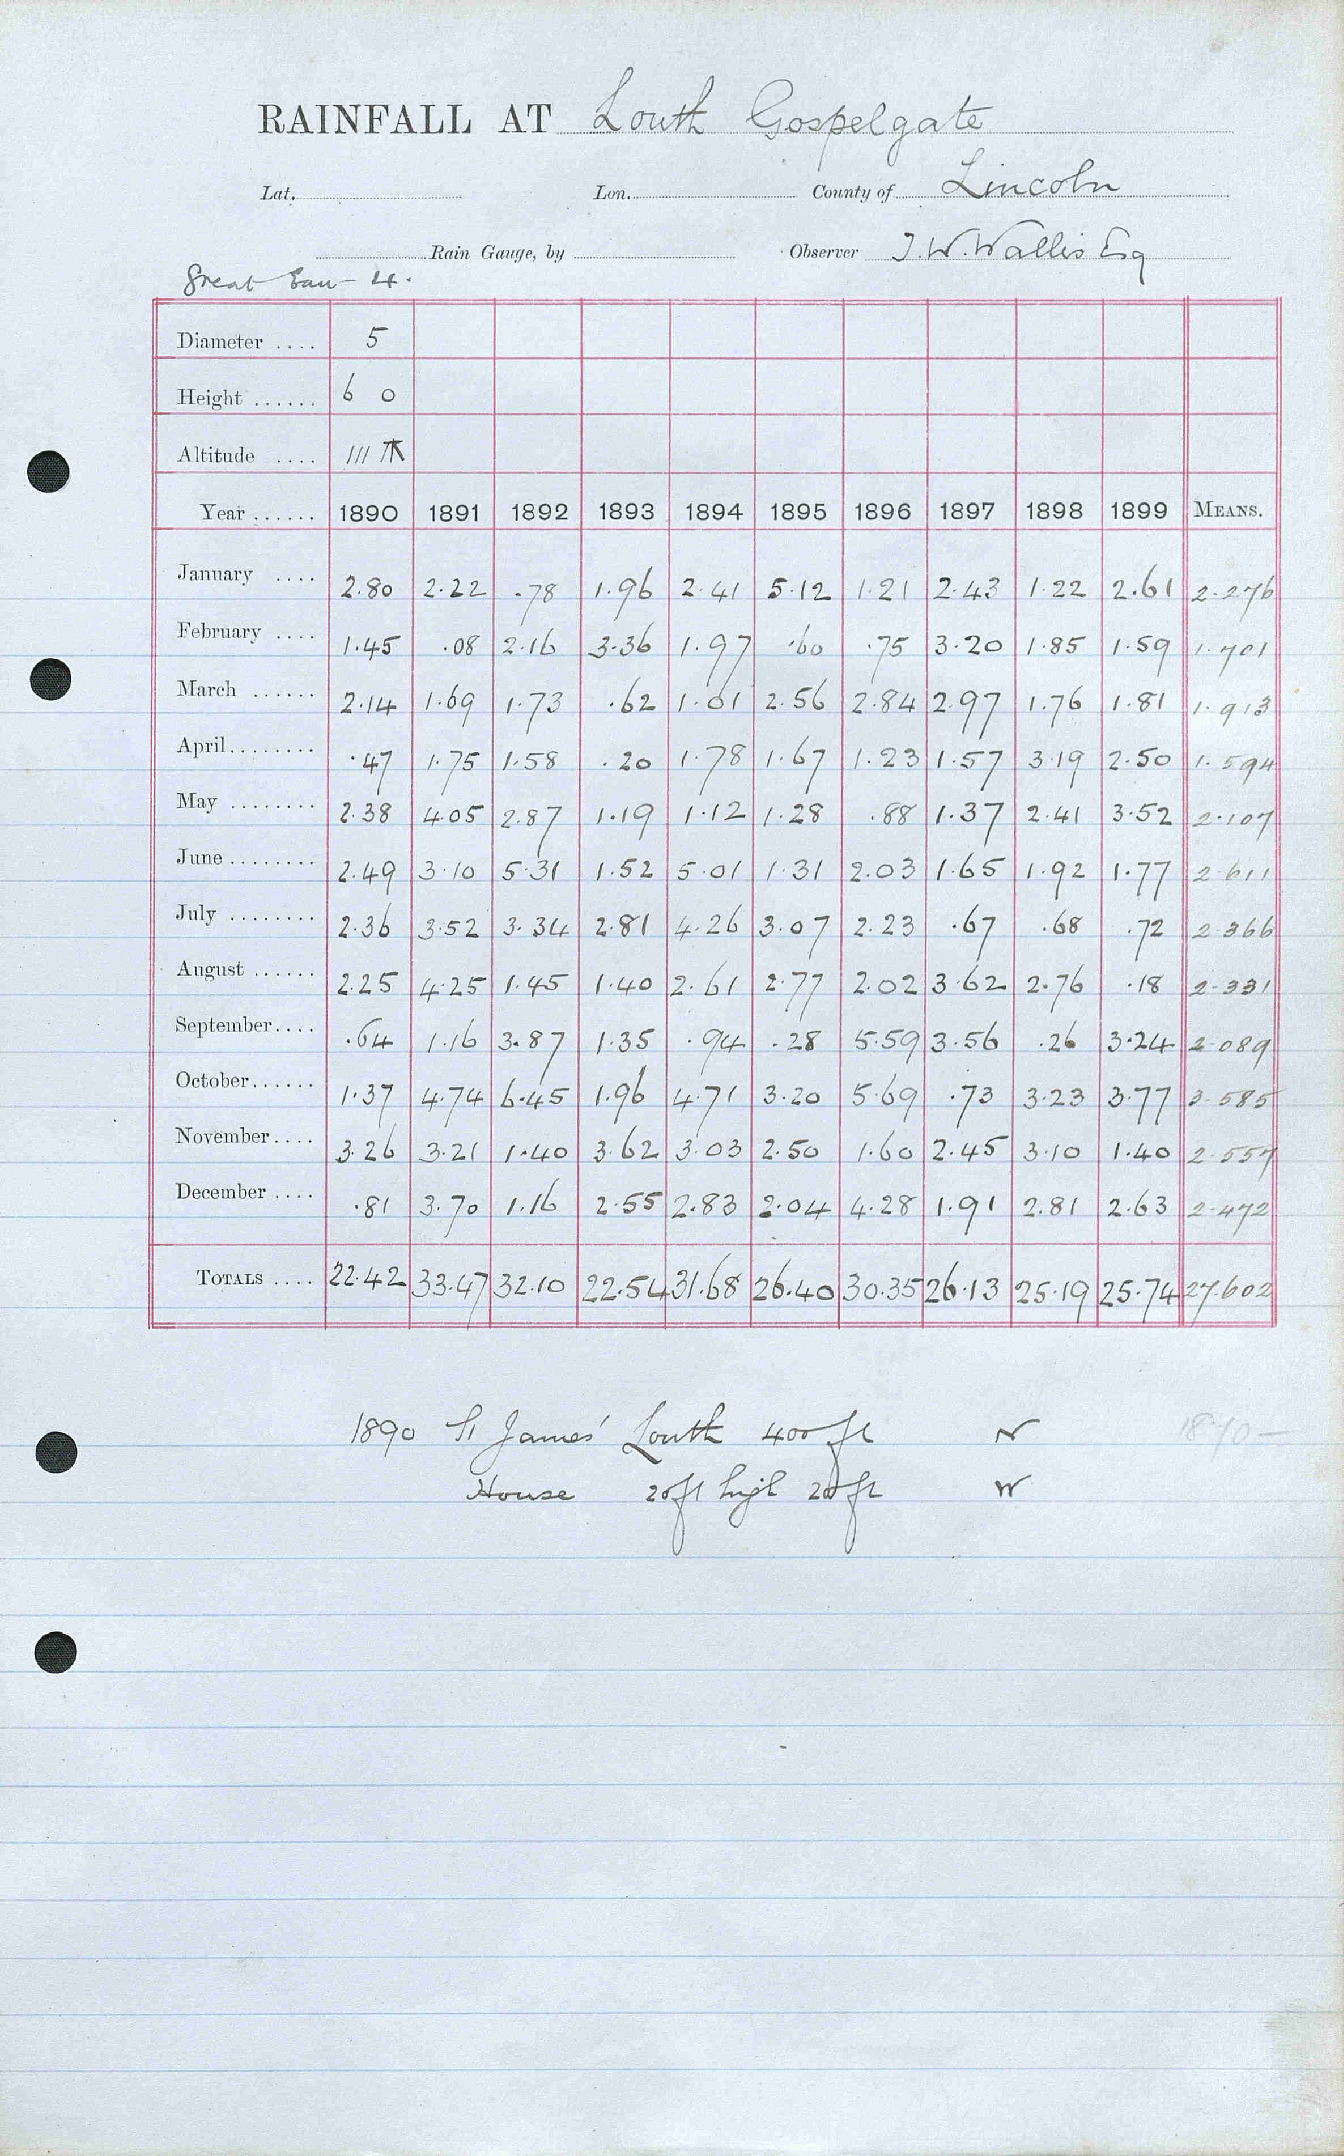 RAINFALL AT Louth Gospelgate
Lat. Lon. County of Lincoln
Rain Gauge, by Observer T.W. Wallis Esq
Great Eau - 4.
Diameter .... 5
Height ...... 6 0
Altitude .... 111
Year ...... 1890 1891 1892 1893 1894 1895 1896 1897 1898 1899 MEANS.
January .... 2.80 2.22 .78 1.96 2.41 5.12 1.21 2.43 1.22 2.61 2.276
February .... 1.45 .08 2.16 3.36 1.97 .60 .75 3.20 1.85 1.59 1.701
March ...... 2.14 1.69 1.73 .62 1.01 2.56 2.84 2.97 1.76 1.81 1.913
April........ .47 1.75 1.58 .20 1.78 1.67 1.23 1.57 3.19 2.50 1.594
May ........ 2.38 4.05 2.87 1.19 1.12 1.28 .88 1.37 2.41 3.52 2.107
June ........ 2.49 3.10 5.31 1.52 5.01 1.31 2.03 1.65 1.92 1.77 2.611
July ........ 2.36 3.52 3.34 2.81 4.26 3.07 2.23 .67 .68 .72 2.366
August ...... 2.25 4.25 1.45 1.40 2.61 2.77 2.02 3.62 2.76 .18 2.331
September.... .64 1.16 3.87 1.35 .94 .28 5.59 3.56 .26 3.24 2.089
October...... 1.37 4.74 6.45 1.96 4.71 3.20 5.69 .73 3.23 3.77 3.585
November.... 3.26 3.21 1.40 3.62 3.03 2.50 1.60 2.45 3.10 1.40 2.557
December .... .81 3.70 1.16 2.55 2.83 2.04 4.28 1.91 2.81 2.63 2.472
TOTALS .... 22.42 33.47 32.10 22.54 31.68 26.40 30.35 26.13 25.19 25.74 27.602
1890 St James' Louth 400 ft N 1870 -
House 20ft high 20 ft W